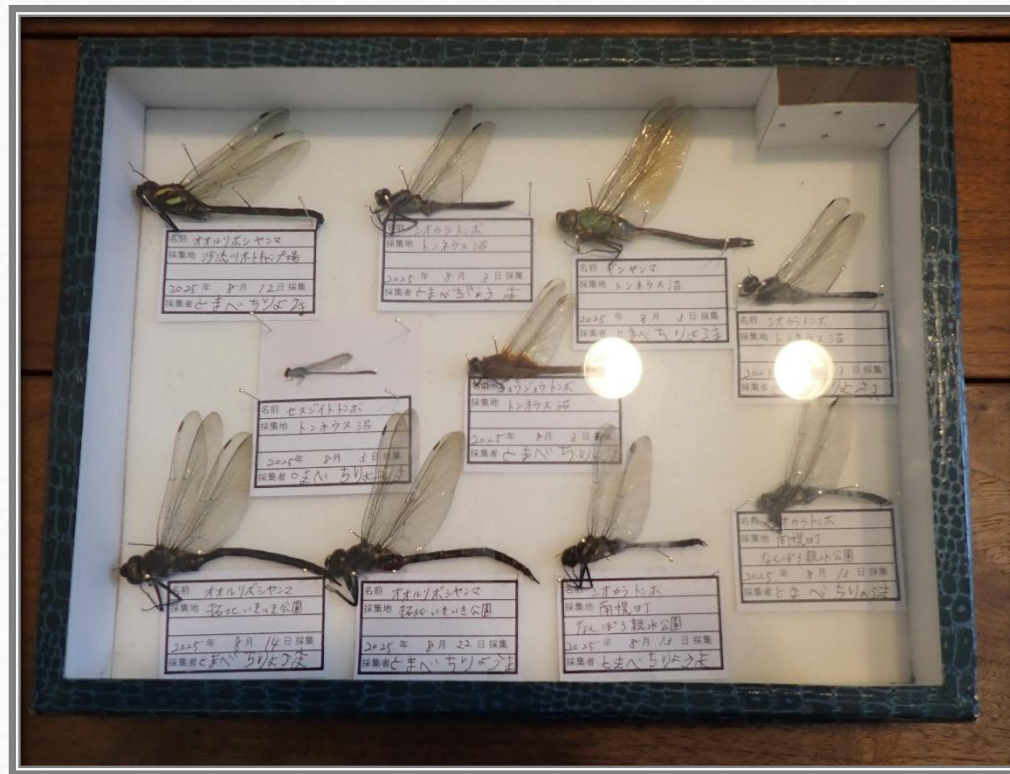 名前 オオルリボシヤンマ
採集地 沙流川オートキャンプ場
2025年 8月 12日採集
採集者 とまべちりょうま
名前 シオカラトンボ
採集地 トンネウス沼
2025年 8月 3日採集
採集者 とまべちりょうま
名前 ギンヤンマ
採集地 トンネウス沼
2025年 8月 3日採集
採集者 とまべちりょうま
名前 シオカラトンボ
採集地 トンネウス沼
3日採集
採集者
名前 セスジイトトンボ
採集地 トンネウス沼
2025年 8月 3日採集
採集者 とまべちりょうま
名前 ショウジョウトンボ
採集地 トンネウス沼
2025年 8月 3日採集
採集者 とまべちりょうま
名前 オオルリボシヤンマ
採集地 拓北いきいき公園
2025年 8月 14日採集
採集者 とまべちりょうま
名前 オオルリボシヤンマ
採集地 拓北いきいき公園
2025年 8月 22日採集
採集者 とまべちりょうま
名前 シオカラトンボ
採集地 南幌町
なんぽろ親水公園
2025年 8月 13日採集
採集者 とまべちりょうま
名前 シオカラトンボ
採集地 南幌町
なんぽろ親水公園
2025年 8月 13日採集
採集者 とまべちりょうま